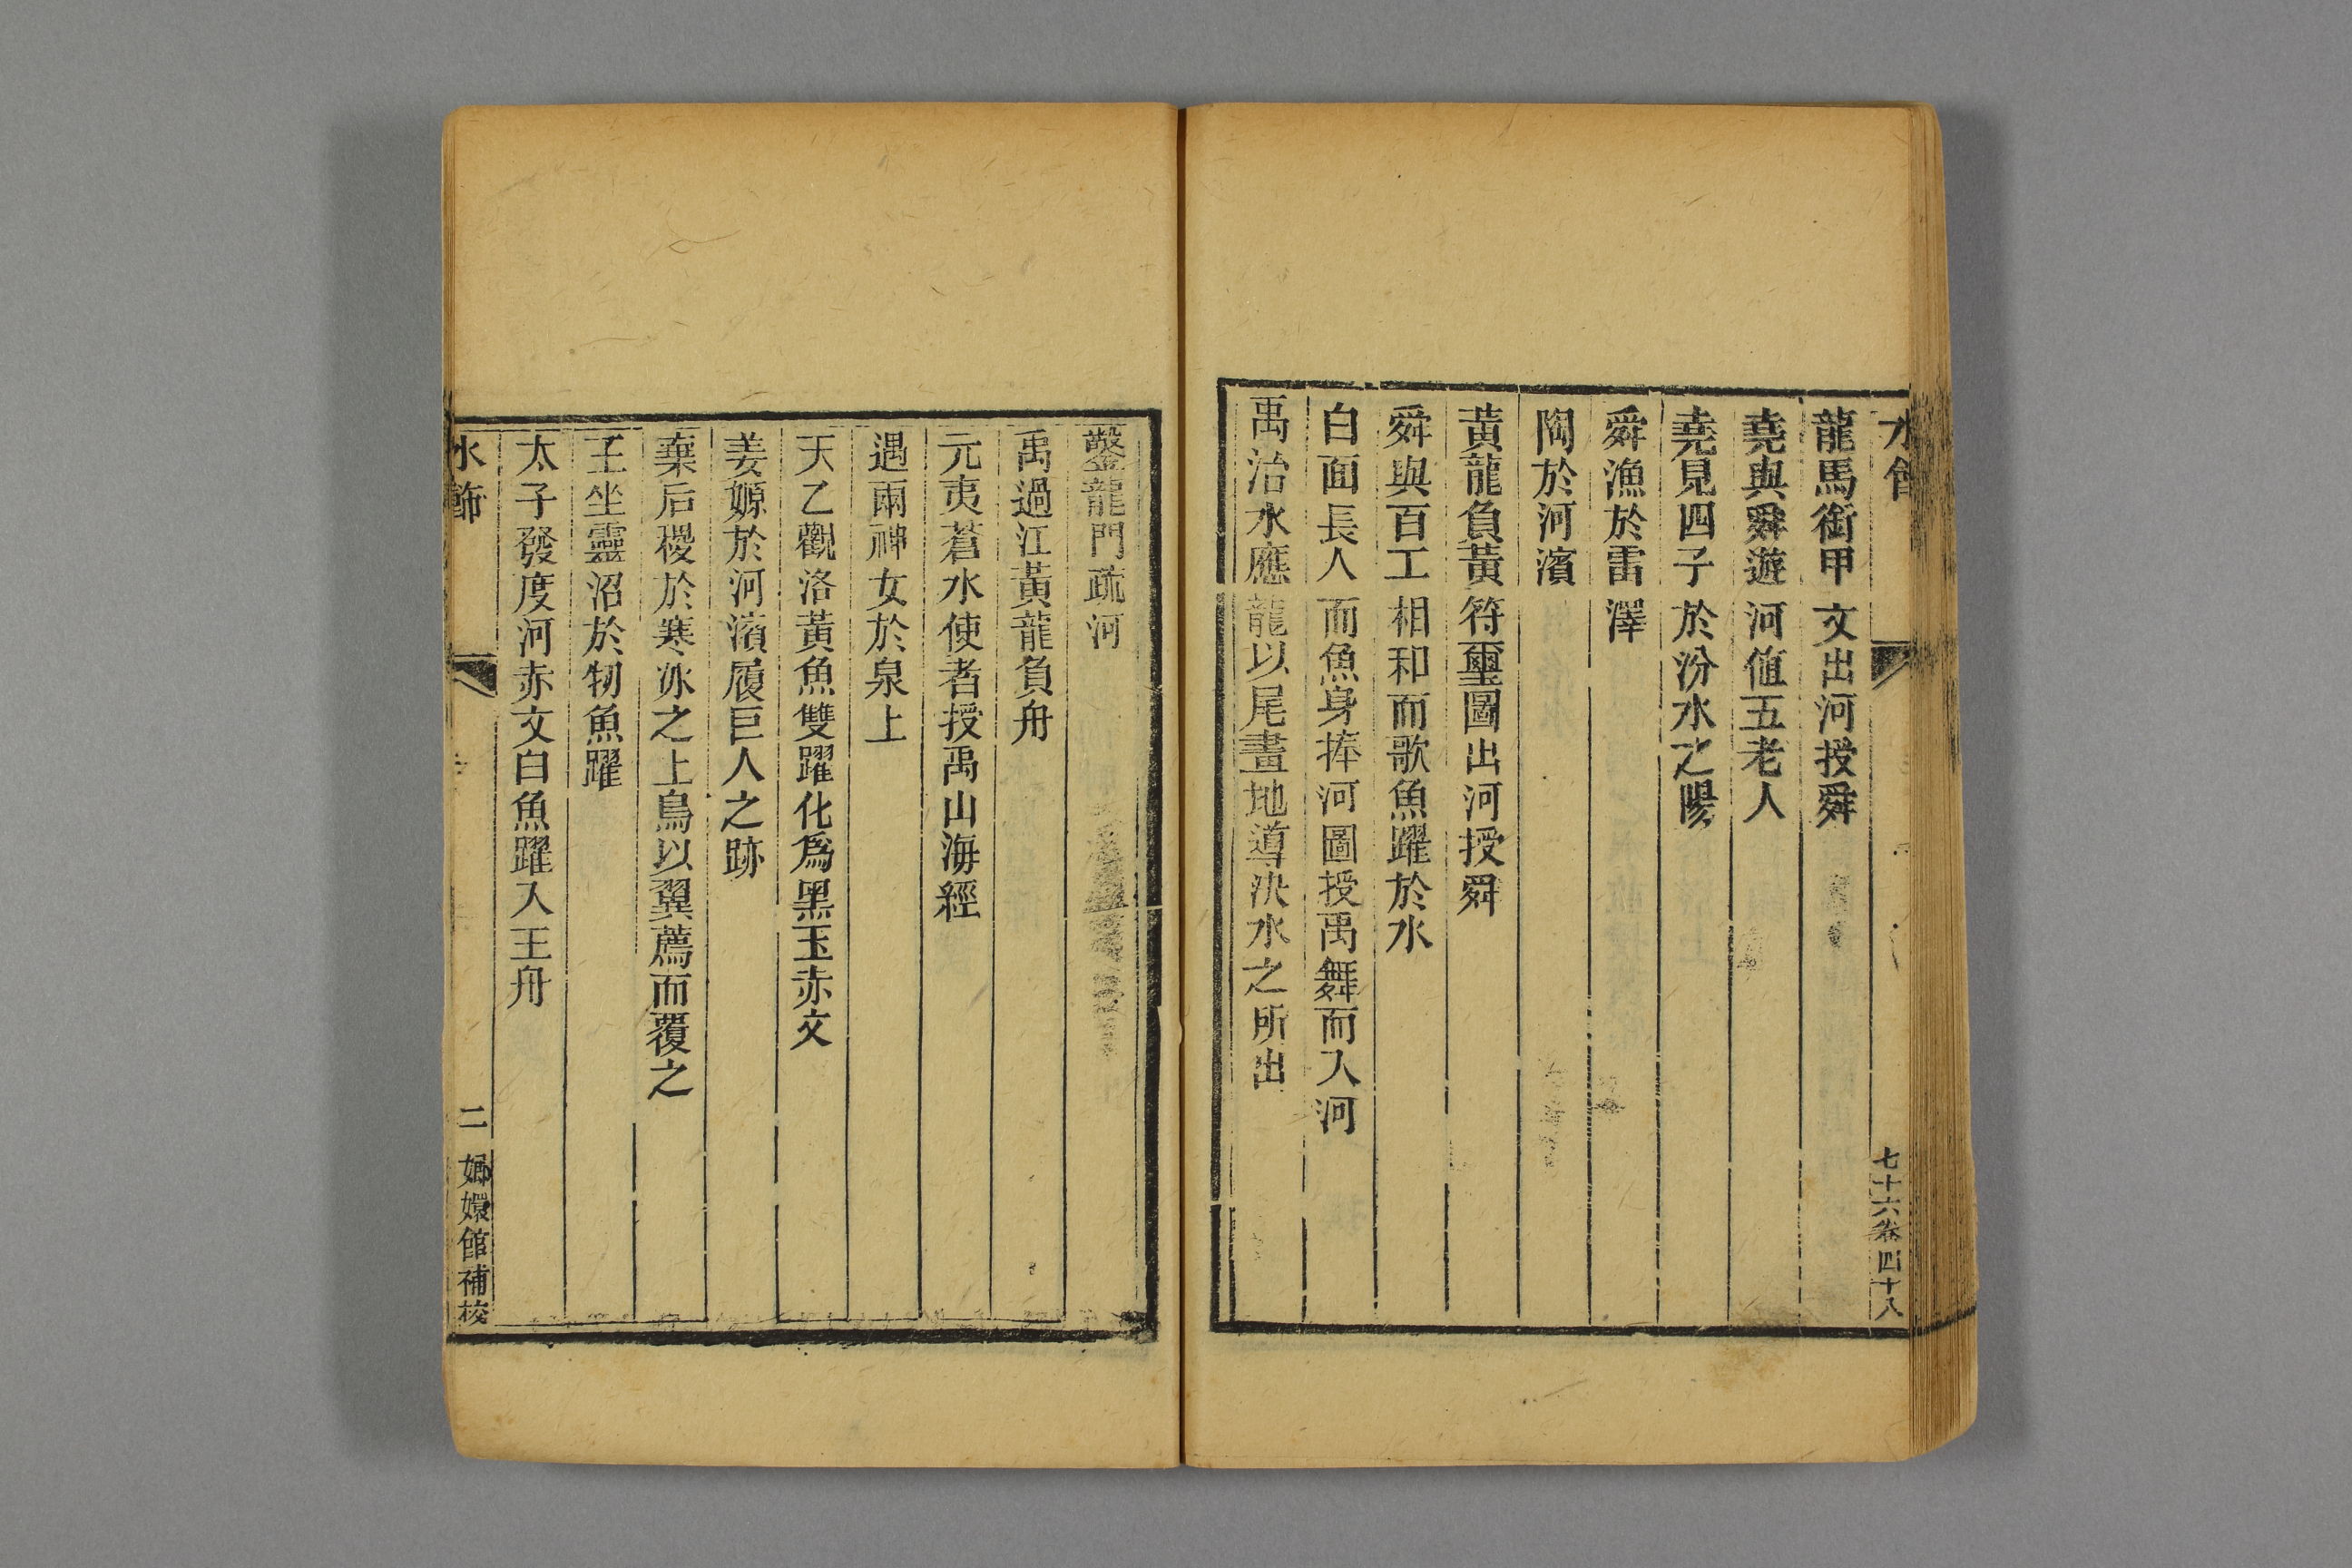 水飾
七十六卷四十八
龍馬銜甲文出河授舜
堯與舜遊河值五老人
堯見四子於汾水之陽
舜漁於雷澤
陶於河濱
黃龍負黃符璽圖出河授舜
舜與百工相和而歌魚躍於水
白面長人而魚身捧河圖授禹舞而入河
禹治水應龍以尾畫地導決水之所出
鑿龍門疏河
禹過江黃龍負舟
元夷蒼水使者授禹山海經
遇兩神女於泉上
天乙觀洛黃魚雙躍化爲黑玉赤文
姜嫄於河濱履巨人之跡
棄后稷於寒冰之上鳥以翼薦而覆之
王坐靈沼於牣魚躍
太子發度河赤文白魚躍入王舟
水飾
二
嫏嬛館補校